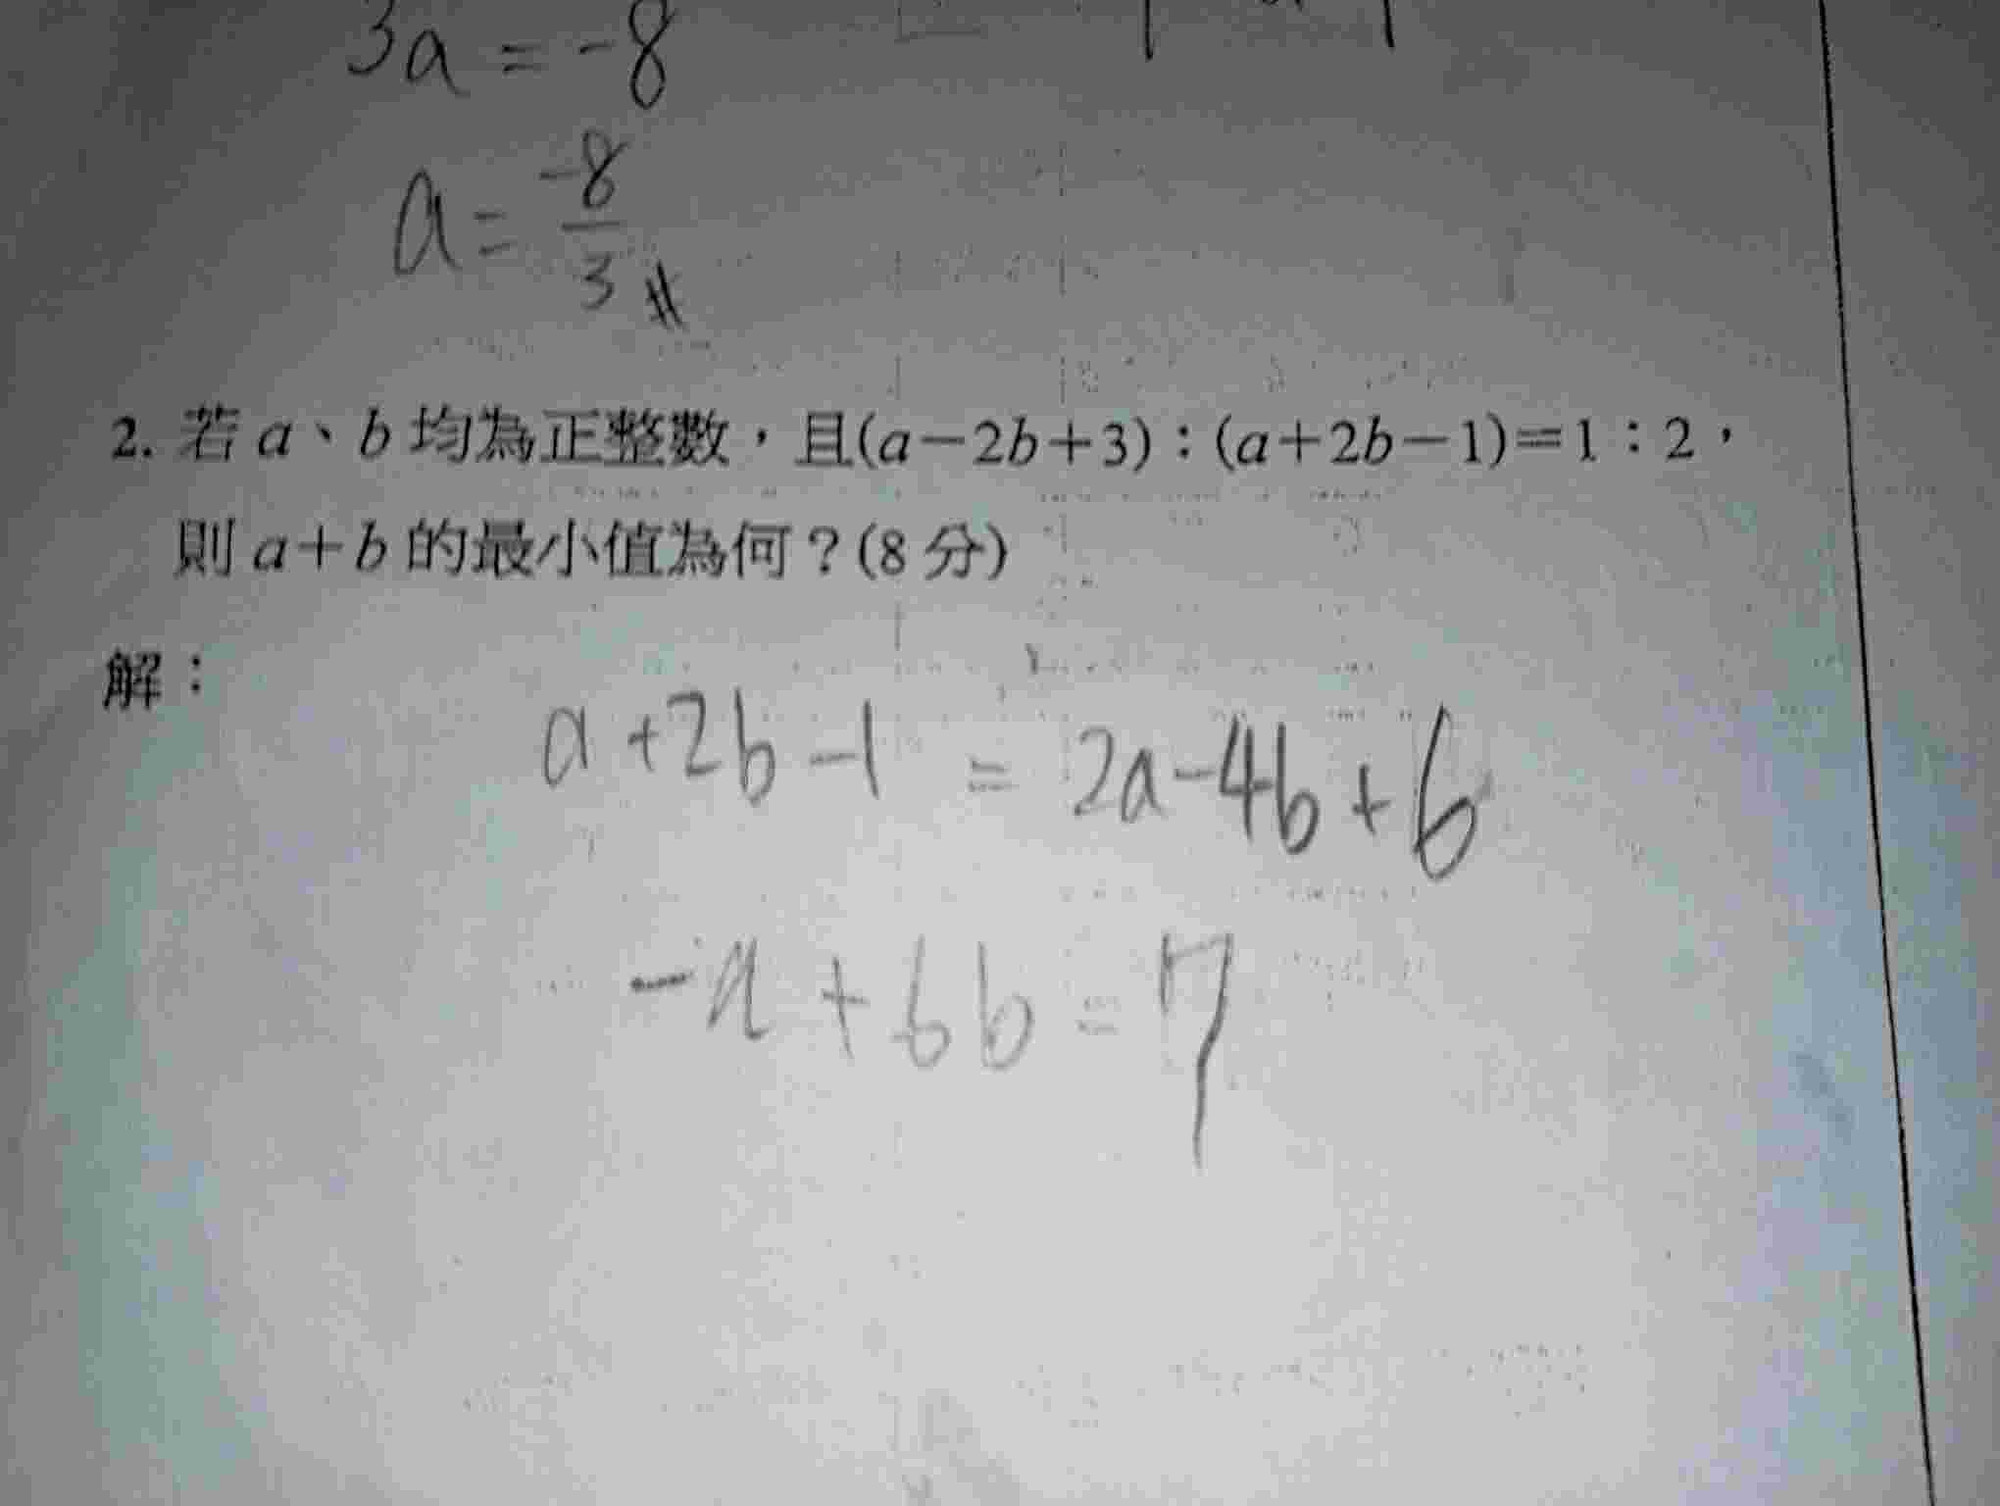 3a = -8
a = -8/3 #
2. 若 a、b 均為正整數，且(a-2b+3)：(a+2b-1)=1：2，
則 a+b 的最小值為何？(8 分)
解：
a+2b-1 = 2a-4b+6
-a+6b=7